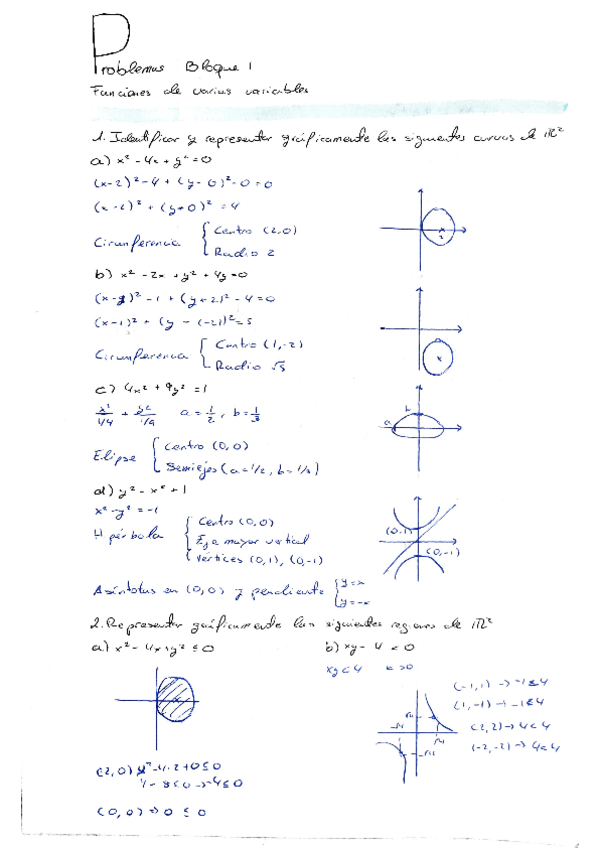 Problemas Bloque 1
Funciones de varias variables
1. Identificar y representar gráficamente las siguientes curvas de IR²
a) x² - 4x + y² = 0
(x-2)² - 4 + (y-0)² - 0 = 0
(x-2)² + (y+0)² = 4
Circunferencia { Centro (2,0)
Radio 2
b) x² - 2x + y² + 4y = 0
(x-1)² - 1 + (y+2)² - 4 = 0
(x-1)² + (y-(-2))² = 5
Circunferencia { Centro (1,-2)
Radio √5
c) 4x² + 9y² = 1
x²/1/4 + y²/1/9 a = 1/2, b = 1/3
b
a
Elipse { Centro (0,0)
Semiejes (a=1/2, b=1/3)
d) y² - x² = 1
x² - y² = -1
Hipérbola { Centro (0,0)
Eje mayor vertical
Vértices (0,1), (0,-1)
(0,1)
(0,-1)
Asíntotas en (0,0) y pendiente { y=x
y=-x
2. Representar gráficamente las siguientes regiones de IR²
a) x² - 4x + y² ≤ 0
b) xy - 4 < 0
xy < 4
(-1,1) → -1 ≤ 4
(1,-1) → -1 ≤ 4
(2,2) → 4 < 4
(-2,-2) → 4 < 4
(2,0) 2² - 4·2 + 0 ≤ 0
4 - 8 ≤ 0 → -4 ≤ 0
(0,0) → 0 ≤ 0